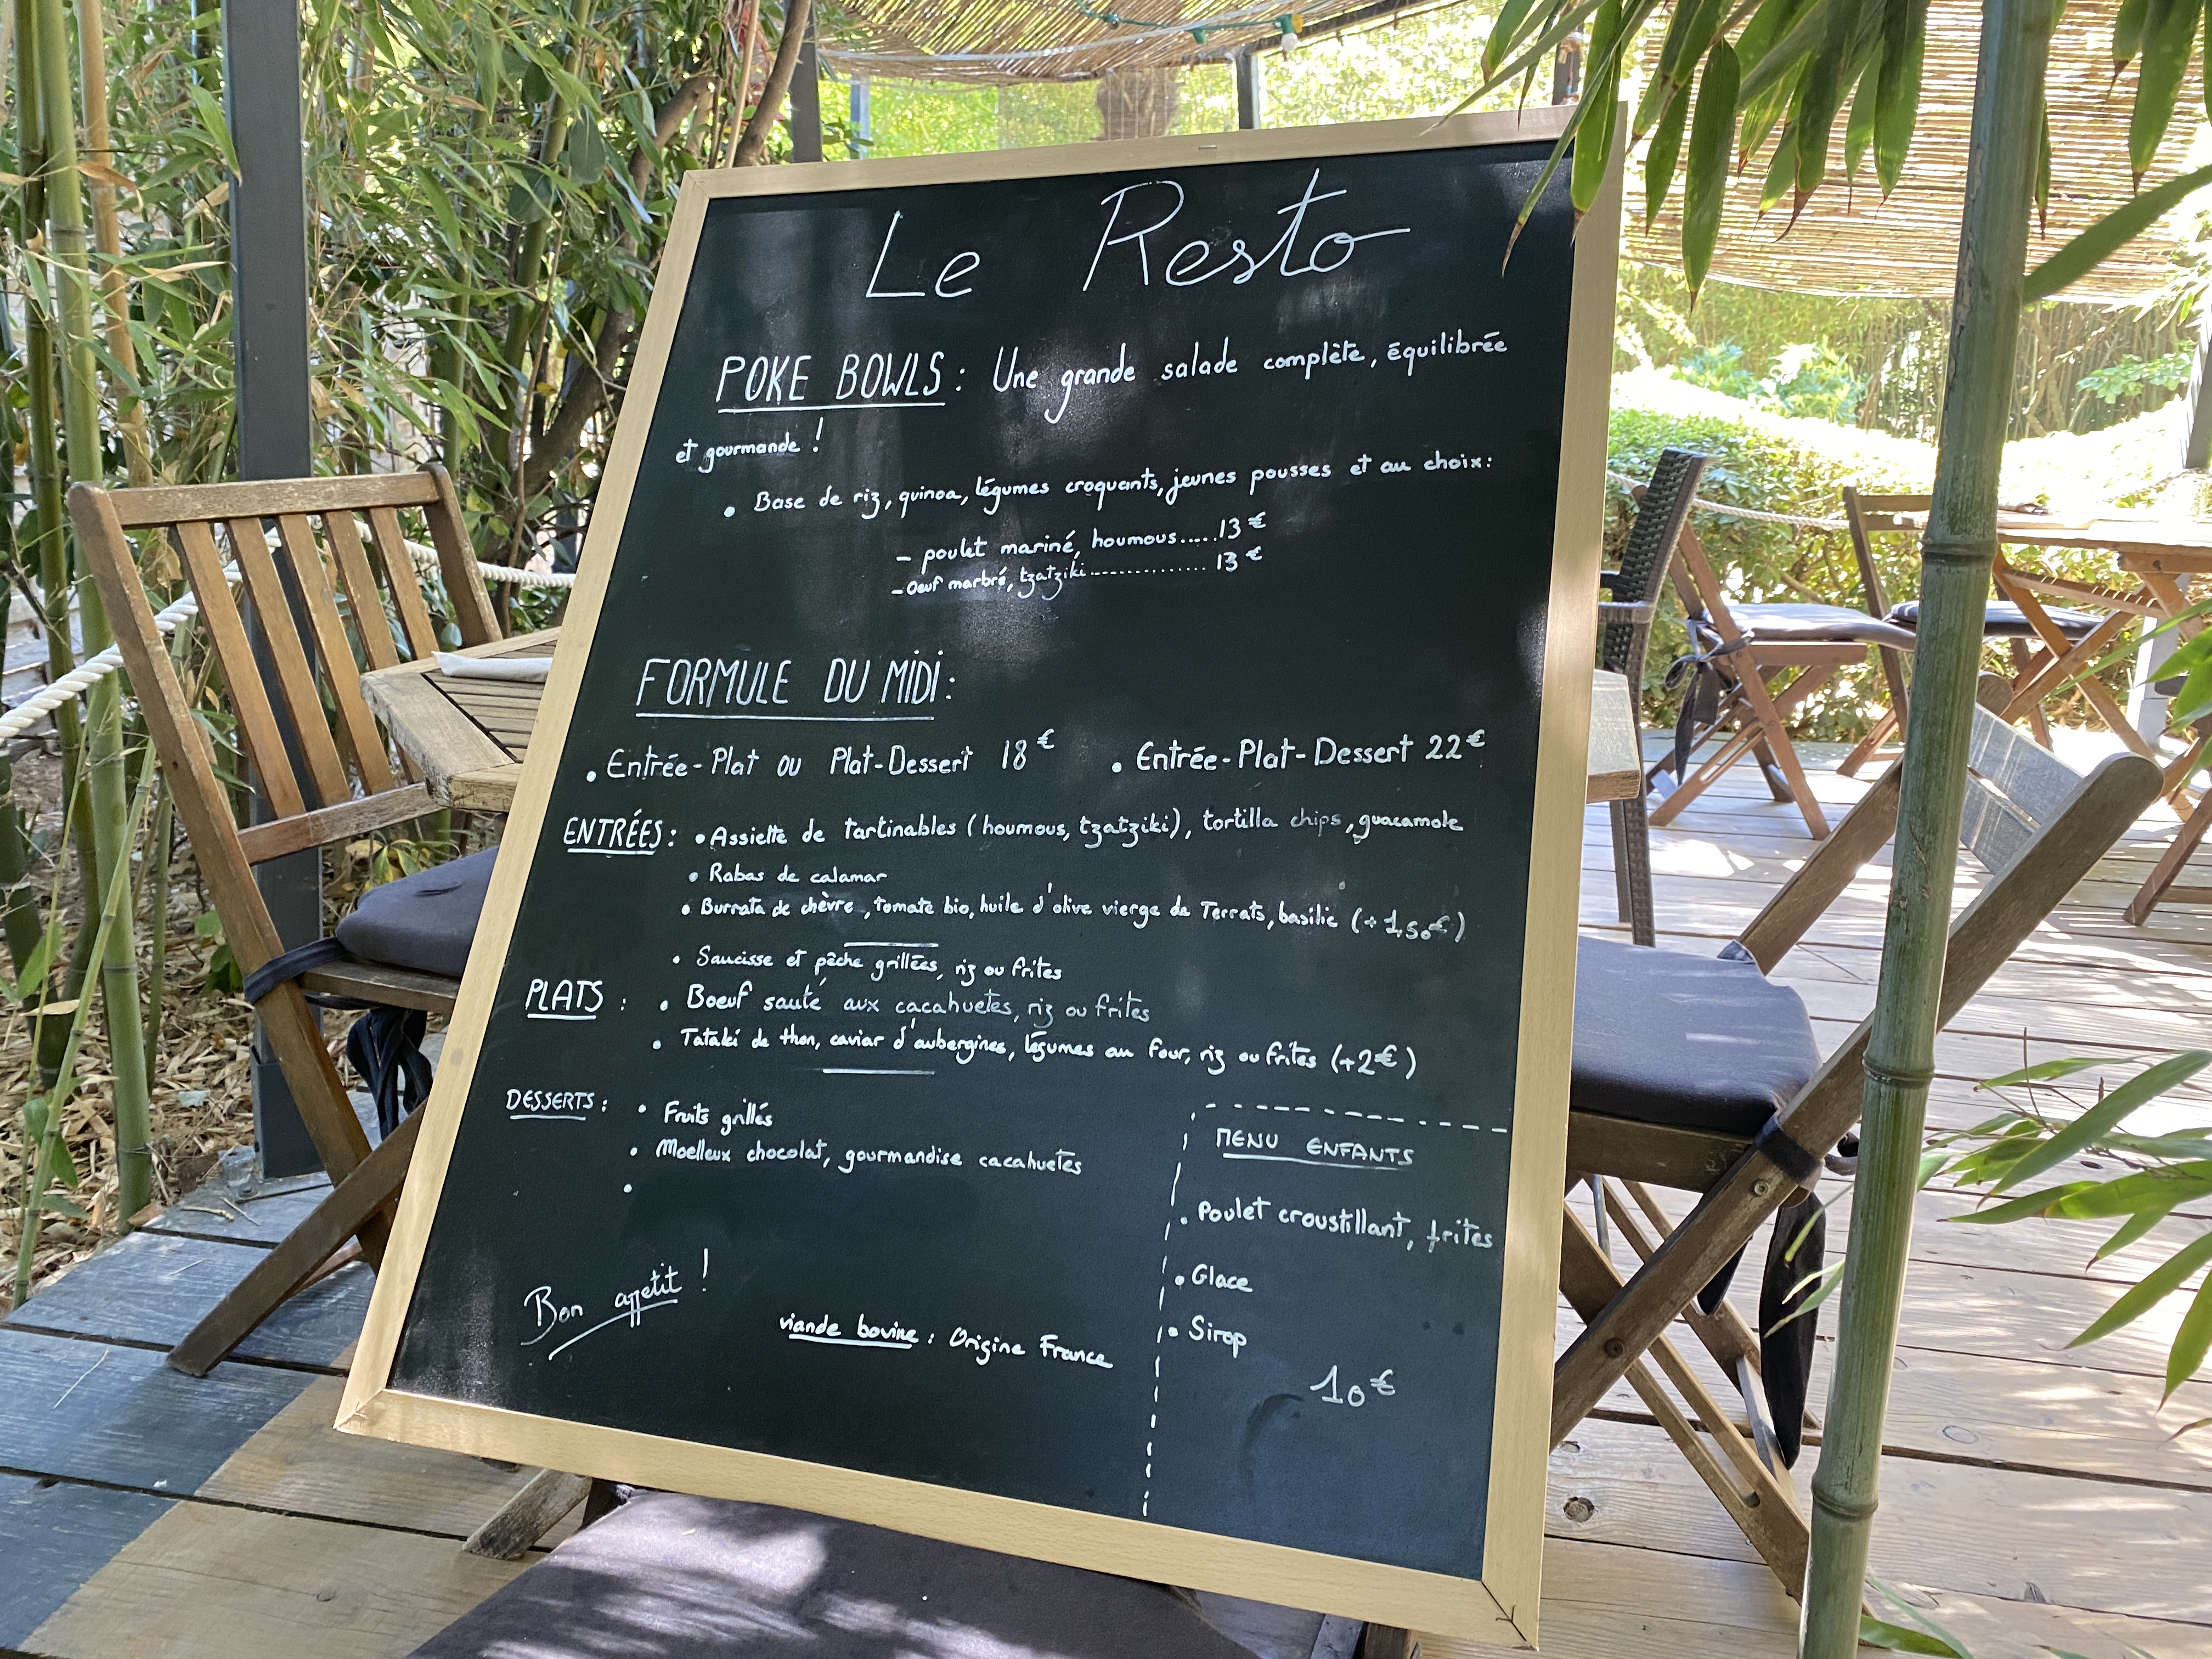 Le Resto
POKE BOWLS : Une grande salade complète, équilibrée
et gourmande !
• Base de riz, quinoa, légumes croquants, jeunes pousses et au choix :
- poulet mariné, houmous.....13€
- Oeuf marbré, tzatziki............... 13€
FORMULE DU MIDI :
• Entrée-Plat ou Plat-Dessert 18€ • Entrée-Plat-Dessert 22€
ENTRÉES : • Assiette de tartinables (houmous, tzatziki), tortilla chips, guacamole
• Rabas de calamar
• Burrata de chèvre, tomate bio, huile d'olive vierge de Terrats, basilic (+1,50€)
• Saucisse et pêche grillées, riz ou frites
PLATS : • Boeuf sauté aux cacahuetes, riz ou frites
• Tataki de thon, caviar d'aubergines, légumes au four, riz ou frites (+2€)
DESSERTS : • Fruits grillés
• Moelleux chocolat, gourmandise cacahuetes
•
MENU ENFANTS
• Poulet croustillant, frites
• Glace
• Sirop
10€
Bon appetit !
viande bovine : Origine France